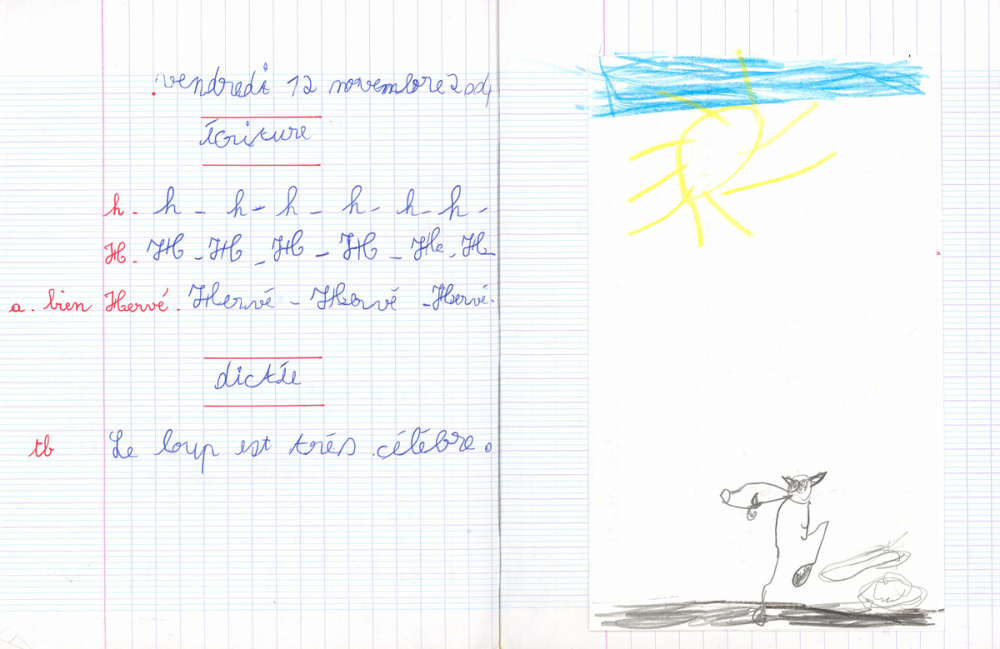 vendredi 12 novembre 2004
écriture
h. h - h - h - h - h - h -
H. H - H - H - H - He - H
a. bien Hervé. Hervé - Hervé - Hervé.
dictée
tb Le loup est trés célébre.